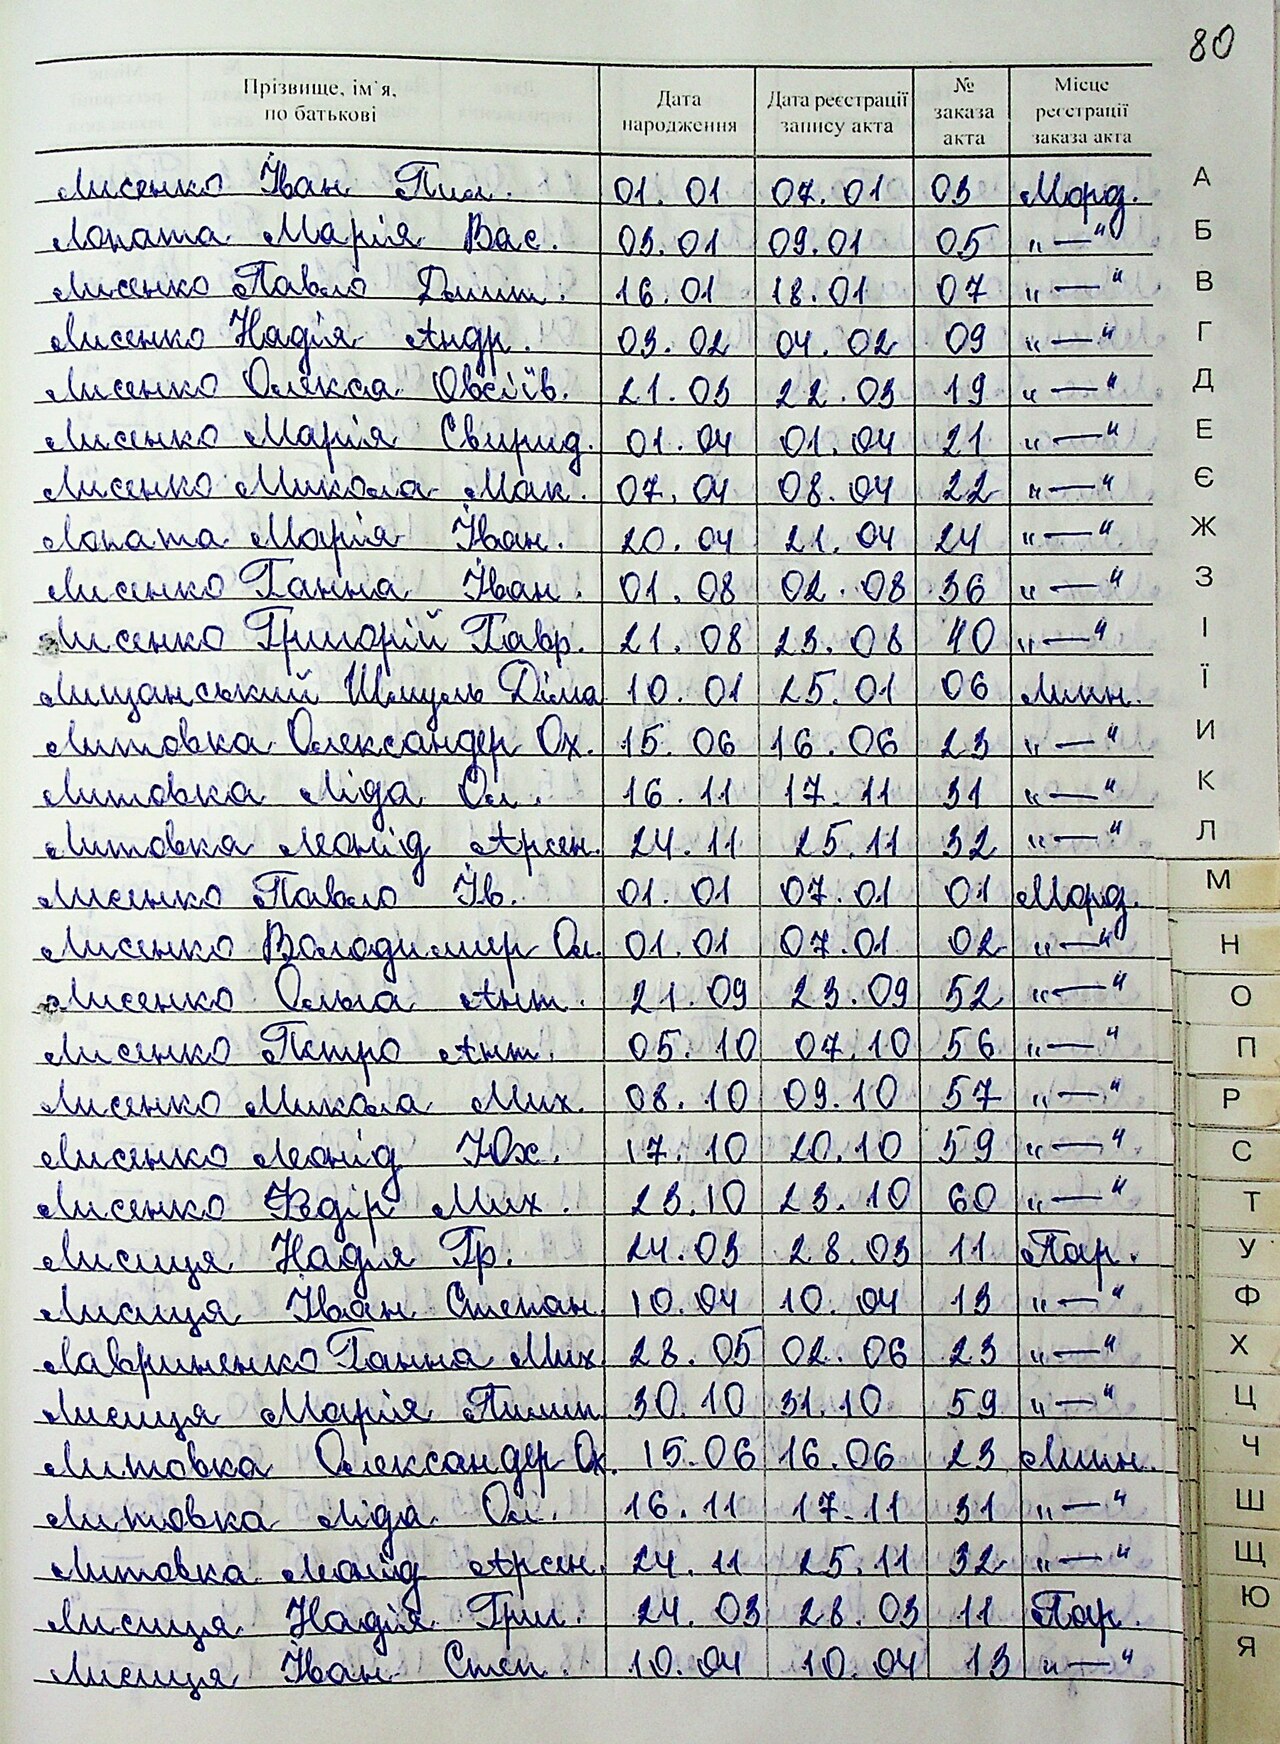 80
Прізвище, ім`я, по батькові Дата народження Дата реєстрації запису акта № заказа акта Місце реєстрації заказа акта
Лисенко Іван Пил. 01.01 07.01 03 Мороз.
Лопата Марія Вас. 03.01 09.01 05 „—"
Лисенко Павло Дмит. 16.01 18.01 07 „—"
Лисенко Надія Андр. 03.02 04.02 09 „—"
Лисенко Олекса Овсіїв. 21.03 22.03 19 „—"
Лисенко Марія Свирид. 01.04 01.04 21 „—"
Лисенко Микола Мак. 07.04 08.04 22 „—"
Лопата Марія Іван. 20.04 21.04 24 „—"
Лисенко Ганна Іван. 01.08 02.08 36 „—"
Лисенко Григорій Гавр. 21.08 23.08 40 „—"
Лищанський Шмуль Діма 10.01 25.01 06 Лин.
Литовка Олександер Ох. 15.06 16.06 23 „—"
Литовка Ліда Ол. 16.11 17.11 31 „—"
Литовка Леонід Арсен. 24.11 25.11 32 „—"
Лисенко Павло Ів. 01.01 07.01 01 Мороз.
Лисенко Володимир Ол. 01.01 07.01 02 „—"
Лисенко Ольга Ант. 21.09 23.09 52 „—"
Лисенко Петро Ант. 05.10 07.10 56 „—"
Лисенко Микола Мих. 08.10 09.10 57 „—"
Лисенко Леонід Юх. 17.10 20.10 59 „—"
Лисенко Федір Мих. 23.10 23.10 60 „—"
Лисиця Надія Гр. 24.03 28.03 11 Пар.
Лисиця Іван Степан. 10.04 10.04 13 „—"
Лавриненко Ганна Мих. 28.05 02.06 23 „—"
Лисиця Марія Пилип. 30.10 31.10 59 „—"
Литовка Олександер Ох. 15.06 16.06 23 Лин.
Литовка Ліда Ол. 16.11 17.11 31 „—"
Литовка Леонід Арсен. 24.11 25.11 32 „—"
Лисиця Надія Григ. 24.03 28.03 11 Пар.
Лисиця Іван Степ. 10.04 10.04 13 „—"
А
Б
В
Г
Д
Е
Є
Ж
З
І
Ї
И
К
Л
М
Н
О
П
Р
С
Т
У
Ф
Х
Ц
Ч
Ш
Щ
Ю
Я